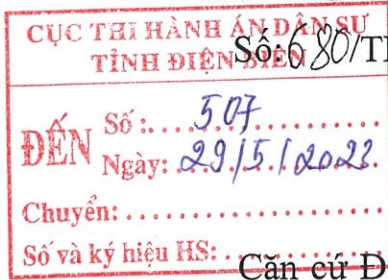 CỤC THI HÀNH ÁN DÂN SỰ
TỈNH ĐIỆN BIÊN
Số: 680/T
ĐẾN
Số: 507
Ngày: 29/5/2023
Chuyển:
Số và ký hiệu HS:
Căn cứ Đ